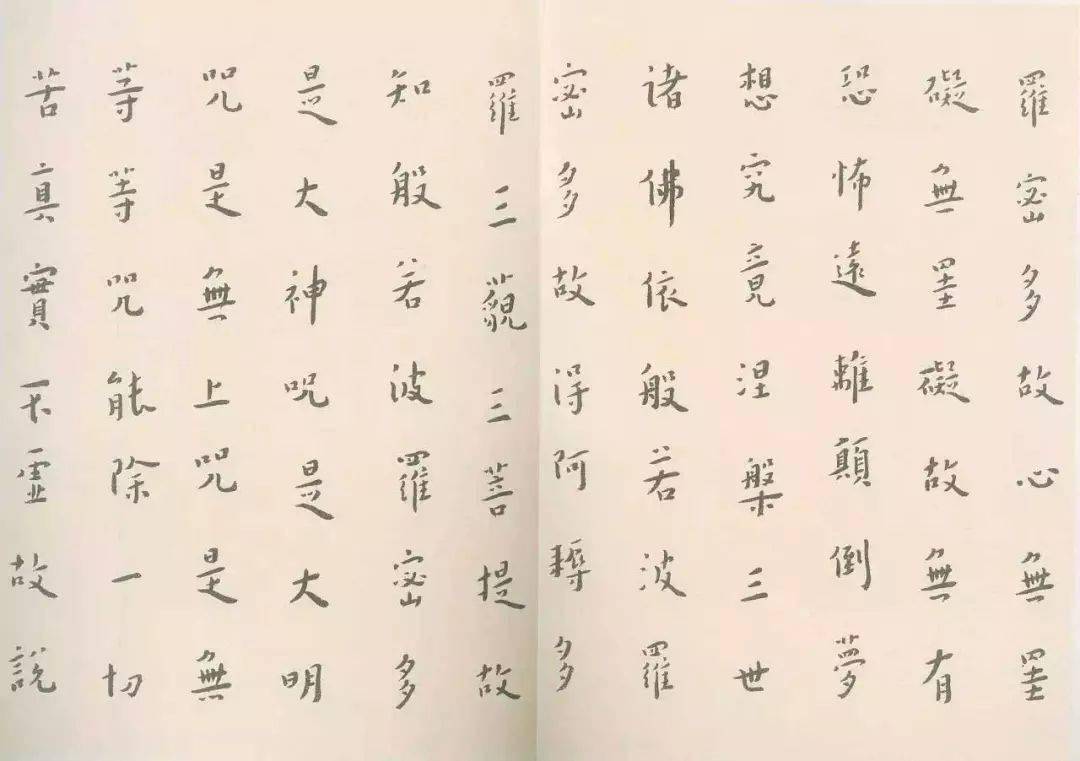 羅密多故心無罣
礙無罣礙故無有
恐怖遠離顛倒夢
想究竟涅槃三世
諸佛依般若波羅
密多故得阿耨多
羅三藐三菩提故
知般若波羅密多
是大神咒是大明
咒是無上咒是無
等等咒能除一切
苦真實不虛故說